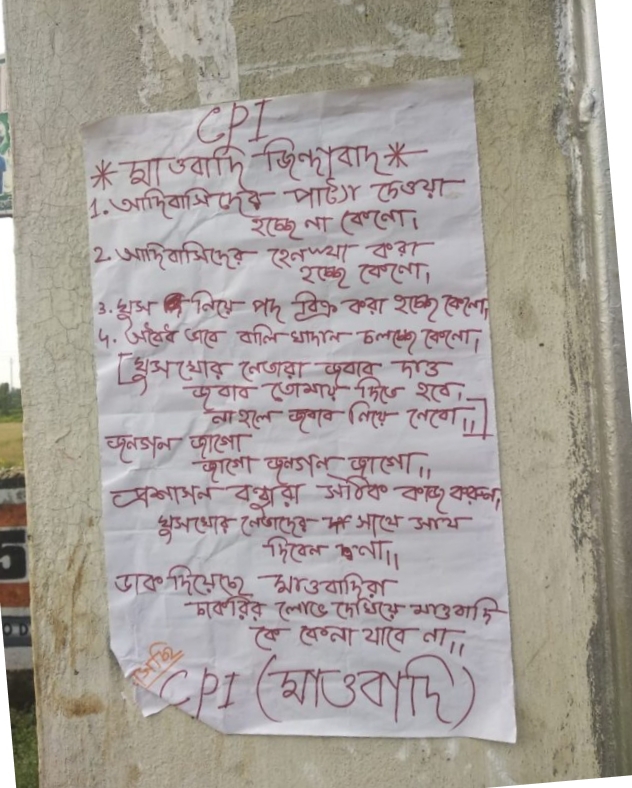 CPI
* মাওবাদি জিন্দাবাদ *
1. আদিবাসিদের পাট্যা দেওয়া
হচ্ছে না কেনো।
2. আদিবাসিদের হেনস্থা করা
হচ্ছে কেনো।
3. ঘুস নিয়ে পদ বিক্রি করা হচ্ছে কেনো
4. অবৈধ ভাবে বালি খাদান চলচ্ছে কেনো।
[ঘুসখোর নেতারা জবাব দাও
জবাব তোমায় দিতে হবে,
না হলে জবাব নিয়ে নেবো।।]
জনগন জাগো
জাগো জনগন জাগো।।
প্রশাসন বন্ধুরা সঠিক কাজ করুন,
ঘুসখোর নেতাদের সাথে সাথ
দিবেন না।।
ডাক দিয়েছে মাওবাদিরা
চাকরির লোভ দেখিয়ে মাওবাদি
কে কেনা যাবে না।।
CPI (মাওবাদি)